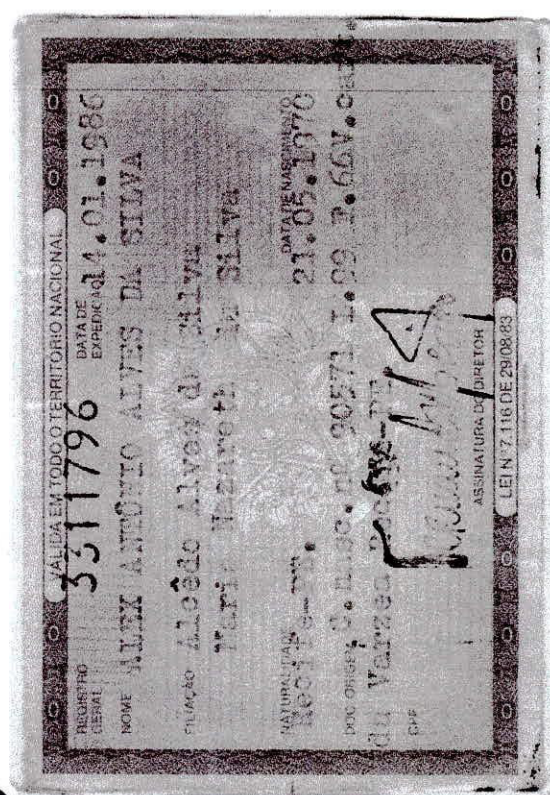 VÁLIDA EM TODO O TERRITÓRIO NACIONAL
REGISTRO GERAL 3311796 DATA DE EXPEDIÇÃO 14.01.1986
NOME ALEX ANTÔNIO ALVES DA SILVA
FILIAÇÃO Alcêdo Alves da Silva
Maria Nazareth da Silva
NATURALIDADE DATA DE NASCIMENTO
Recife-PE. 21.05.1970
DOC ORIGEM C.nasc.nº 90571 L.99 F.66V.cart.
da Varzea
CPF
ASSINATURA DO DIRETOR
LEI Nº 7.116 DE 29/08/83